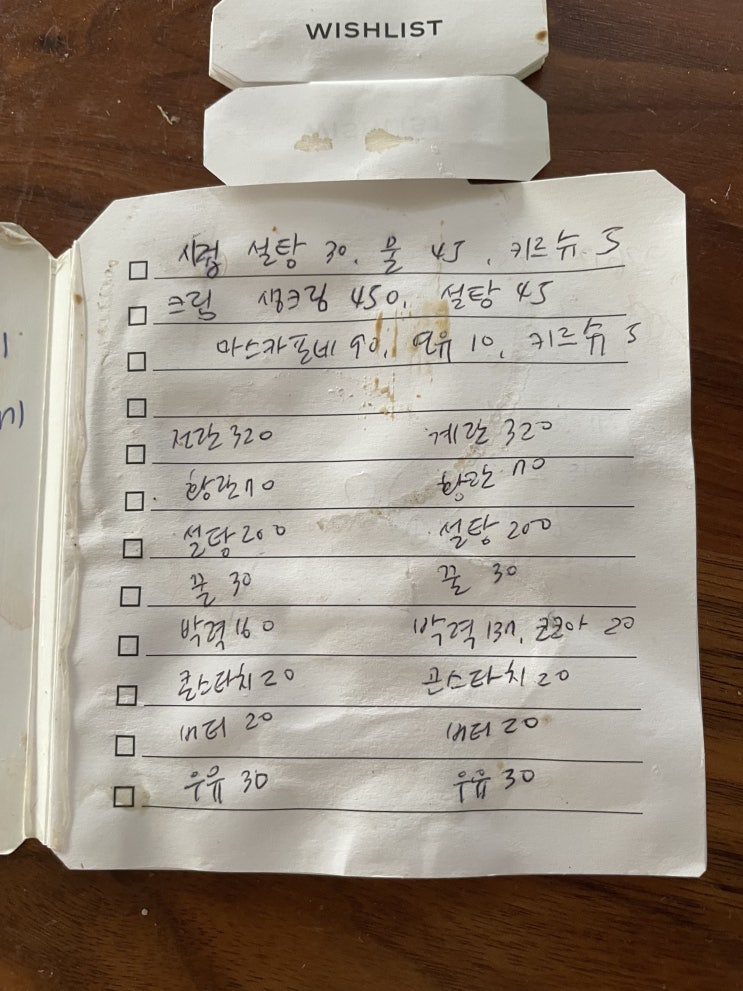 WISHLIST
시럽 설탕 30. 물 45. 키르슈 5
크림 생크림 450. 설탕 45
마스카포네 90. 연유 10. 키르슈 5
전란 320 계란 320
황란 70 황란 70
설탕 200 설탕 200
꿀 30 꿀 30
박력 160 박력 137. 코코아 20
콘스타치 20 콘스타치 20
버터 20 버터 20
우유 30 우유 30